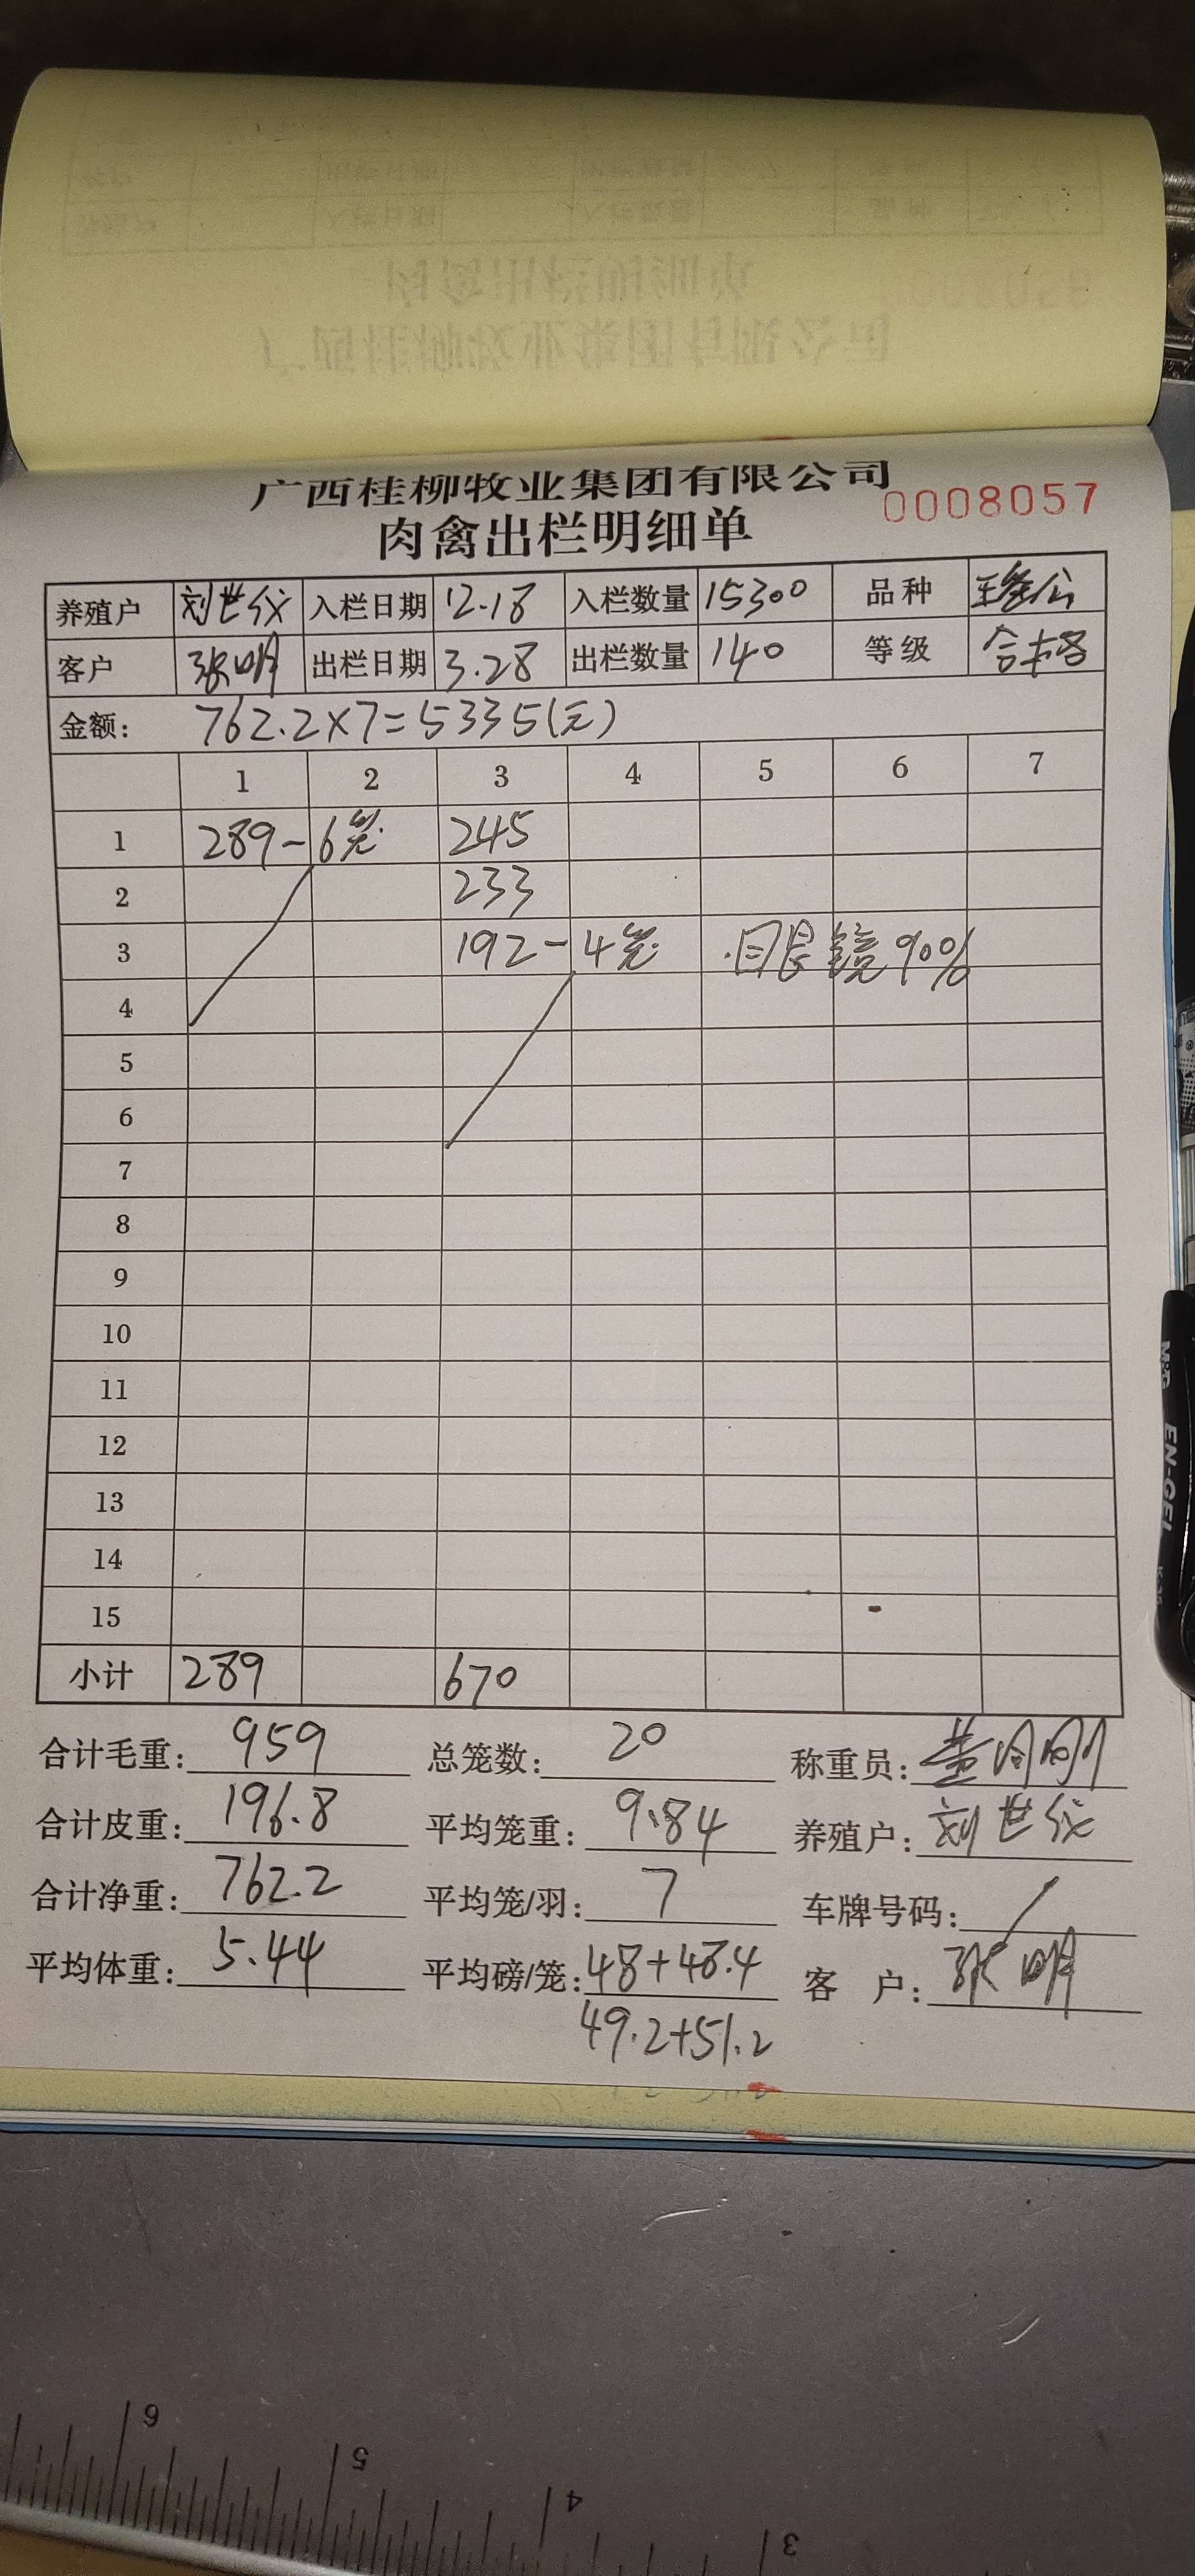 广西桂柳牧业集团有限公司
肉禽出栏明细单 0008057
养殖户 刘世仪 入栏日期 12.18 入栏数量 15300 品种
客户 张明 出栏日期 3.28 出栏数量 140 等级 合格
金额: 762.2×7=5335(元)
1 2 3 4 5 6 7
1 289-6笼 245
2 233
3 192-4笼 眼镜90%
4
5
6
7
8
9
10
11
12
13
14
15
小计 289 670
合计毛重: 959 总笼数: 20 称重员:
合计皮重: 196.8 平均笼重: 9.84 养殖户: 刘世仪
合计净重: 762.2 平均笼/羽: 7 车牌号码: /
平均体重: 5.44 平均磅/笼: 48+48.4 客 户: 张明
49.2+51.2
M&G EN-GEL
6 5 4 3